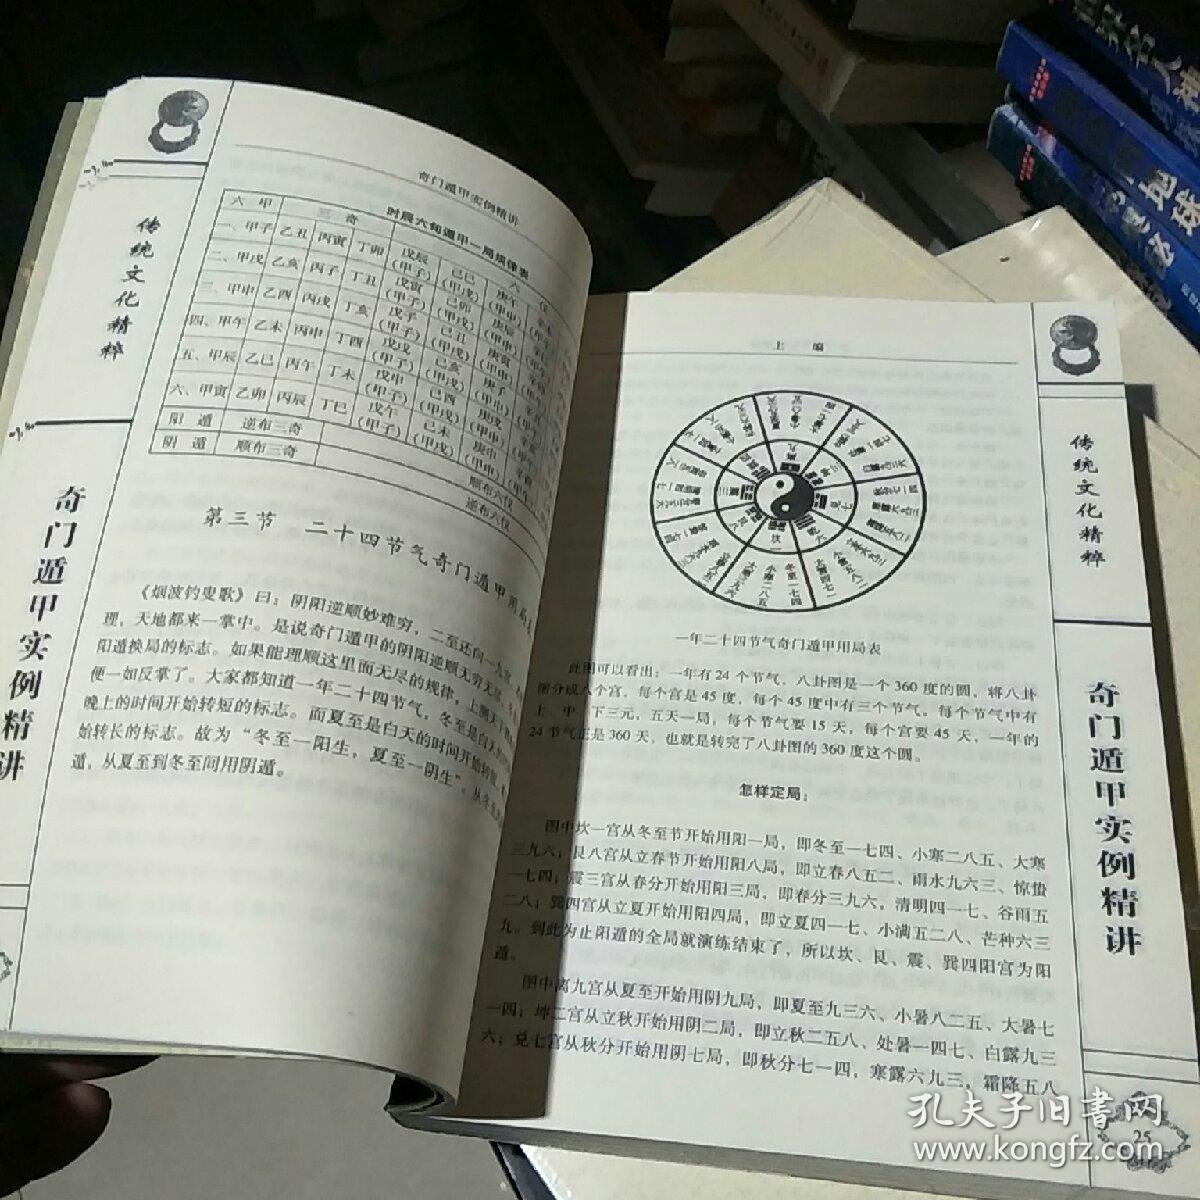 奇门遁甲实例精讲
时辰六旬遁甲一局规律表
六 甲 三 奇 六 仪
一、甲子 乙丑 丙寅 丁卯 戊辰(甲子) 己巳(甲戌) 庚午(甲申)
二、甲戌 乙亥 丙子 丁丑 戊寅(甲子) 己卯(甲戌) 庚辰(甲申)
三、甲申 乙酉 丙戌 丁亥 戊子(甲子) 己丑(甲戌) 庚寅(甲申)
四、甲午 乙未 丙申 丁酉 戊戌(甲子) 己亥(甲戌) 庚子(甲申)
五、甲辰 乙巳 丙午 丁未 戊申(甲子) 己酉(甲戌) 庚戌(甲申)
六、甲寅 乙卯 丙辰 丁巳 戊午(甲子) 己未(甲戌) 庚申(甲申)
阳 遁 逆布三奇 顺布六仪
阴 遁 顺布三奇 逆布六仪
第三节 二十四节气奇门遁甲用局
《烟波钓叟歌》曰：阴阳逆顺妙难穷，二至还向一九宫，
理，天地都来一掌中。是说奇门遁甲的阴阳逆顺无穷无尽，
阳遁换局的标志。如果能理顺这里面无尽的规律，上测天
便一如反掌了。大家都知道一年二十四节气，冬至是白天的
晚上的时间开始转短的标志。而夏至是白天的时间开始转
始转长的标志。故为“冬至一阳生，夏至一阴生”。从冬
遁，从夏至到冬至间用阴遁。
传统文化精粹
奇门遁甲实例精讲
上 编
一年二十四节气奇门遁甲用局表
此图可以看出：一年有24个节气，八卦图是一个360度的圆，将八卦
图分成八个宫，每个宫是45度，每个45度中有三个节气。每个节气中有
上、中、下三元，五天一局，每个节气要15天，每个宫要45天，一年的
24节气正是360天，也就是转完了八卦图的360度这个圆。
怎样定局：
图中坎一宫从冬至节开始用阳一局，即冬至一七四、小寒二八五、大寒
三九六；艮八宫从立春节开始用阳八局，即立春八五二、雨水九六三、惊蛰
一七四；震三宫从春分开始用阳三局，即春分三九六，清明四一七、谷雨五
二八；巽四宫从立夏开始用阳四局，即立夏四一七、小满五二八、芒种六三
九。到此为止阳遁的全局就演练结束了，所以坎、艮、震、巽四阳宫为阳
遁。
图中离九宫从夏至开始用阴九局，即夏至九三六、小暑八二五、大暑七
一四；坤二宫从立秋开始用阴二局，即立秋二五八、处暑一四七、白露九三
六；兑七宫从秋分开始用阴七局，即秋分七一四，寒露六九三，霜降五八
传统文化精粹
奇门遁甲实例精讲
25
孔夫子旧书网
www.kongfz.com